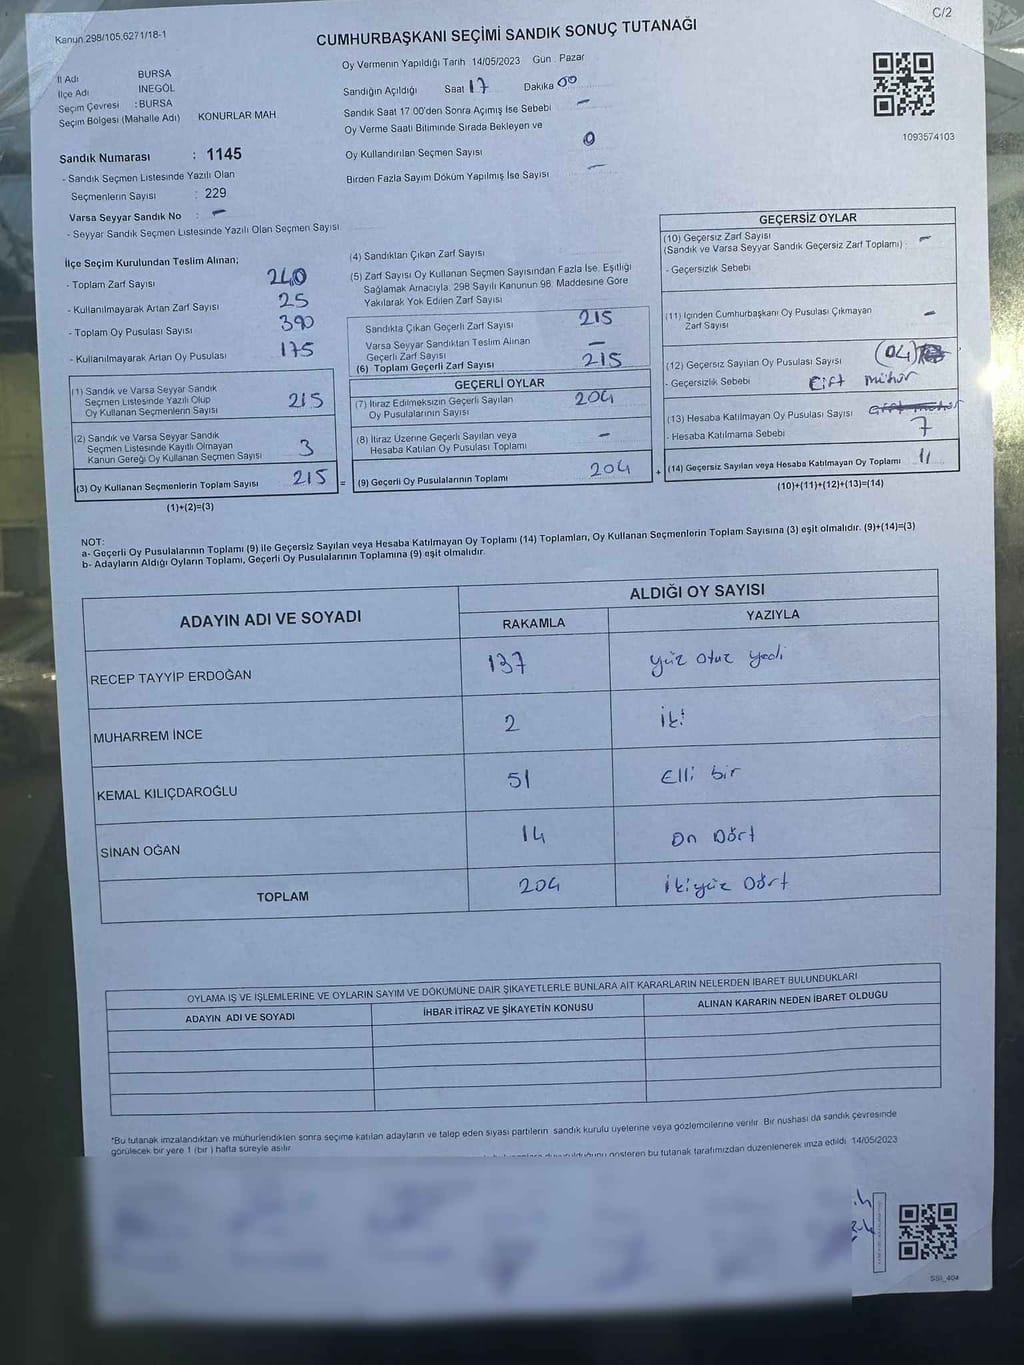 C/2
Kanun 298/105,6271/18-1
CUMHURBAŞKANI SEÇİMİ SANDIK SONUÇ TUTANAĞI
İl Adı BURSA
İlçe Adı İNEGÖL
Seçim Çevresi : BURSA
Seçim Bölgesi (Mahalle Adı) KONURLAR MAH
Sandık Numarası : 1145
- Sandık Seçmen Listesinde Yazılı Olan
Seçmenlerin Sayısı : 229
Varsa Seyyar Sandık No : -
- Seyyar Sandık Seçmen Listesinde Yazılı Olan Seçmen Sayısı
Oy Vermenin Yapıldığı Tarih 14/05/2023 Gün . Pazar
Sandığın Açıldığı Saat 17 Dakika 00
Sandık Saat 17 00'den Sonra Açımış İse Sebebi -
Oy Verme Saati Bitiminde Sırada Bekleyen ve
Oy Kullandırılan Seçmen Sayısı 0
Birden Fazla Sayım Döküm Yapılmış İse Sayısı -
1093574103
İlçe Seçim Kurulundan Teslim Alınan;
- Toplam Zarf Sayısı 240
- Kullanılmayarak Artan Zarf Sayısı 25
- Toplam Oy Pusulası Sayısı 390
- Kullanılmayarak Artan Oy Pusulası 175
(1) Sandık ve Varsa Seyyar Sandık
Seçmen Listesinde Yazılı Olup
Oy Kullanan Seçmenlerin Sayısı 215
(2) Sandık ve Varsa Seyyar Sandık
Seçmen Listesinde Kayıtlı Olmayan
Kanun Gereği Oy Kullanan Seçmen Sayısı 3
(3) Oy Kullanan Seçmenlerin Toplam Sayısı 215
(1)+(2)=(3)
(4) Sandıktan Çıkan Zarf Sayısı
(5) Zarf Sayısı Oy Kullanan Seçmen Sayısından Fazla İse, Eşitliği
Sağlamak Amacıyla, 298 Sayılı Kanunun 98. Maddesine Göre
Yakılarak Yok Edilen Zarf Sayısı
Sandıkta Çıkan Geçerli Zarf Sayısı 215
Varsa Seyyar Sandıktan Teslim Alınan
Geçerli Zarf Sayısı -
(6) Toplam Geçerli Zarf Sayısı 215
GEÇERLİ OYLAR
(7) İtiraz Edilmeksizin Geçerli Sayılan
Oy Pusulalarının Sayısı 204
(8) İtiraz Üzerine Geçerli Sayılan veya
Hesaba Katılan Oy Pusulası Toplamı -
= (9) Geçerli Oy Pusulalarının Toplamı 204 +
GEÇERSİZ OYLAR
(10) Geçersiz Zarf Sayısı
(Sandık ve Varsa Seyyar Sandık Geçersiz Zarf Toplamı) : -
- Geçersizlik Sebebi
(11) İçinden Cumhurbaşkanı Oy Pusulası Çıkmayan
Zarf Sayısı -
(12) Geçersiz Sayılan Oy Pusulası Sayısı (04)
- Geçersizlik Sebebi Çift mühür
(13) Hesaba Katılmayan Oy Pusulası Sayısı Çift mühür
- Hesaba Katılmama Sebebi 7
(14) Geçersiz Sayılan veya Hesaba Katılmayan Oy Toplamı 11
(10)+(11)+(12)+(13)=(14)
NOT:
a- Geçerli Oy Pusulalarının Toplamı (9) ile Geçersiz Sayılan veya Hesaba Katılmayan Oy Toplamı (14) Toplamları, Oy Kullanan Seçmenlerin Toplam Sayısına (3) eşit olmalıdır. (9)+(14)=(3)
b- Adayların Aldığı Oyların Toplamı, Geçerli Oy Pusulalarının Toplamına (9) eşit olmalıdır.
ADAYIN ADI VE SOYADI ALDIĞI OY SAYISI
RAKAMLA YAZIYLA
RECEP TAYYİP ERDOĞAN 137 yüz otuz yedi
MUHARREM İNCE 2 İki
KEMAL KILIÇDAROĞLU 51 Elli bir
SİNAN OĞAN 14 On Dört
TOPLAM 204 İkiyüz Dört
OYLAMA İŞ VE İŞLEMLERİNE VE OYLARIN SAYIM VE DÖKÜMÜNE DAİR ŞİKAYETLERLE BUNLARA AİT KARARLARIN NELERDEN İBARET BULUNDUKLARI
ADAYIN ADI VE SOYADI İHBAR İTİRAZ VE ŞİKAYETİN KONUSU ALINAN KARARIN NEDEN İBARET OLDUĞU
*Bu tutanak imzalandıktan ve mühürlendikten sonra seçime katılan adayların ve talep eden siyasi partilerin sandık kurulu üyelerine veya gözlemcilerine verilir Bir nüshası da sandık çevresinde
görülecek bir yere 1 (bir) hafta süreyle asılır
gösteren bu tutanak tarafımızdan düzenlenerek imza edildi 14/05/2023
SSI_404